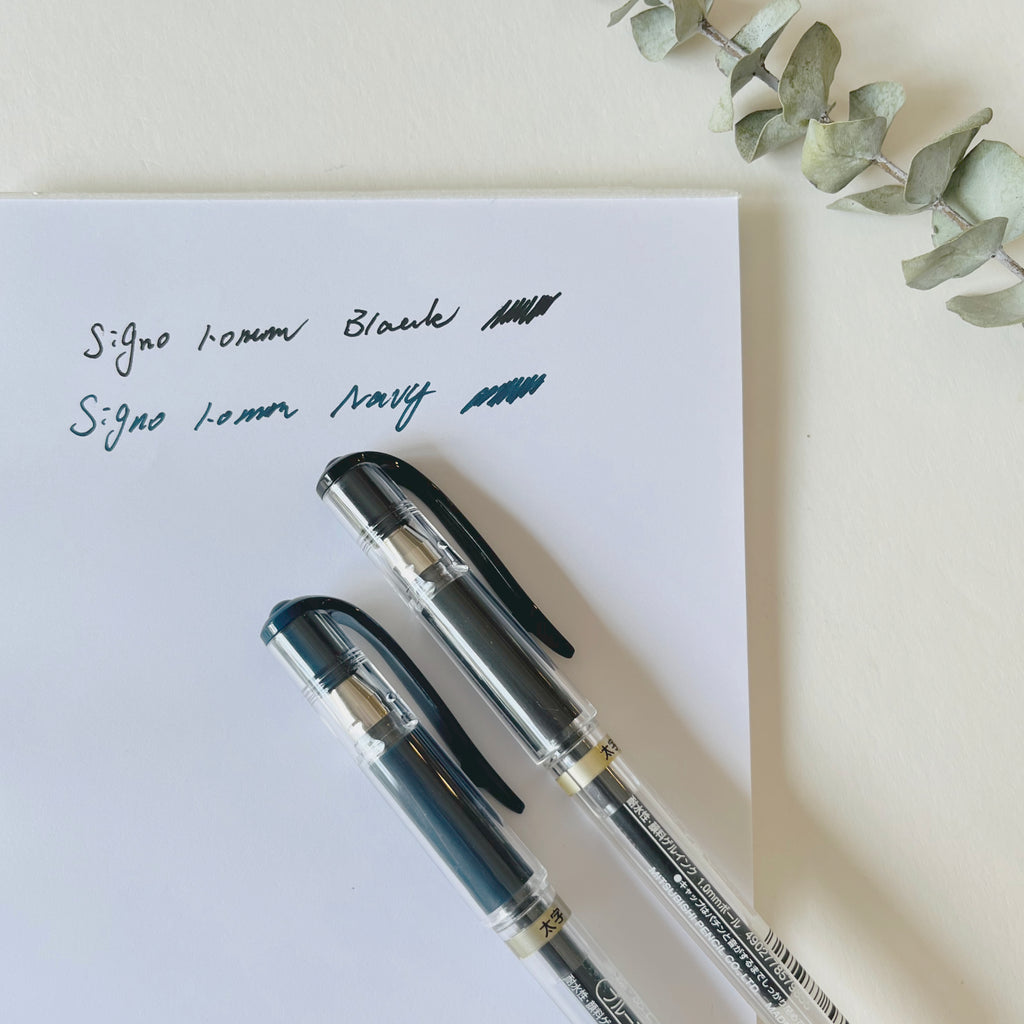 Signo 1.0mm Black
Signo 1.0mm Navy
太字
耐水性・顔料ゲルインク 1.0mmボール
●キャップはパチンと音がするまでしっかり
MITSUBISHI PENCIL CO., LTD.
太字
耐水性・顔料